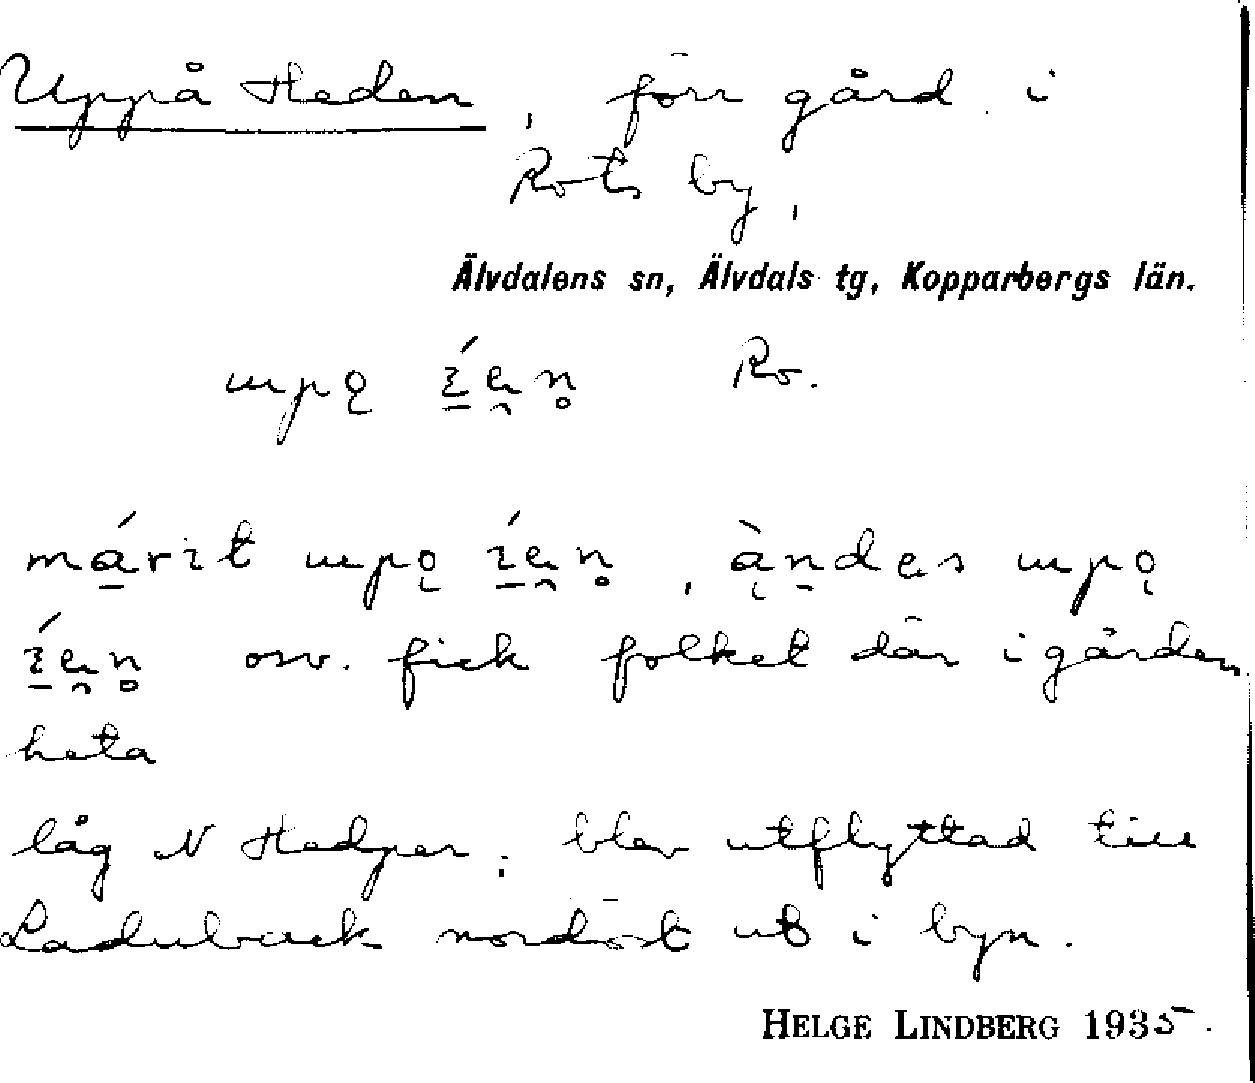 Uppå Heden, förr gård i
Rots by,
Älvdalens sn, Älvdals tg, Kopparbergs län.
upǫ íen̥ Ro.
márit upǫ íen̥, àndes upǫ
íen̥ osv. fick folket där i gården
heta
låg N Hedper; blev utflyttad till
Laduback nordöst ut i byn.
HELGE LINDBERG 1935.